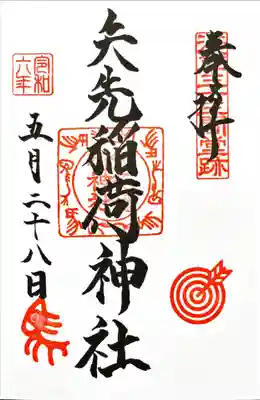 奉拝
矢先稲荷神社
令和
六年
五月二十八日